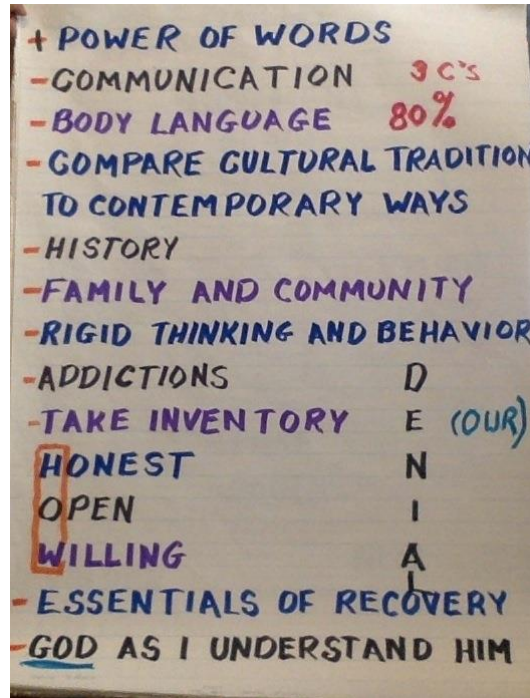 + POWER OF WORDS
- COMMUNICATION 3 C'S
- BODY LANGUAGE 80%
- COMPARE CULTURAL TRADITION
TO CONTEMPORARY WAYS
- HISTORY
- FAMILY AND COMMUNITY
- RIGID THINKING AND BEHAVIOR
- ADDICTIONS D
- TAKE INVENTORY E (OUR)
HONEST N
OPEN I
WILLING A
L
- ESSENTIALS OF RECOVERY
- GOD AS I UNDERSTAND HIM